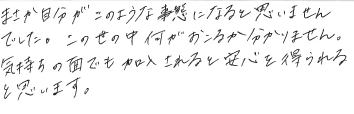 まさか自分がこのような事態になると思いません
でした。この世の中何がおこるか分かりません。
気持ちの面でも加入されると安心を得られる
と思います。